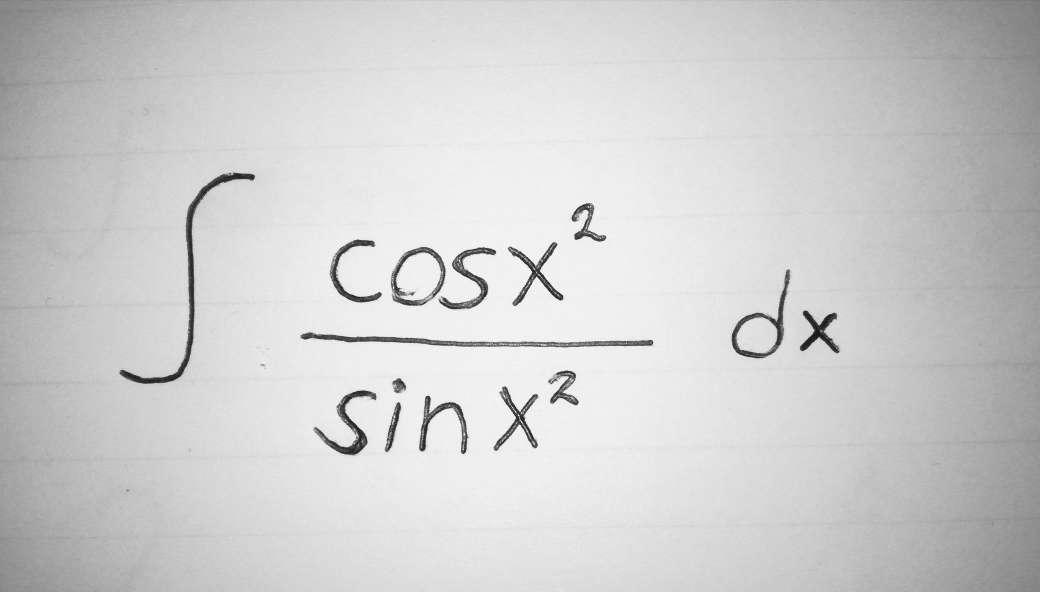 ∫ cosx² / sinx² dx